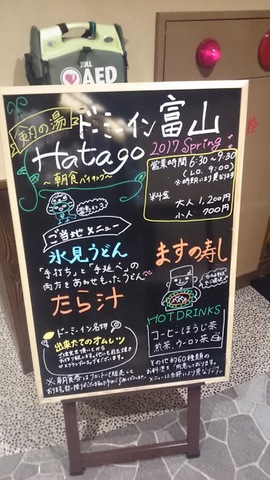 ZOLL
AED
朝の湯
ドーミーイン富山
Hatago 2017 Spring
～朝食バイキング～
営業時間 6:30～9:30
(L.O. 9:00)
料金
大人 1,200円
小人 700円
ご当地メニュー
氷見うどん
「手打ち」と「手延べ」の
両方をあわせもったうどん
たら汁
ますの寿し
ドーミーイン名物
出来たてのオムレツ
HOT DRINKS
コーヒー ほうじ茶
煎茶 ウーロン茶
その他約60種類の
お料理をご用意しております。